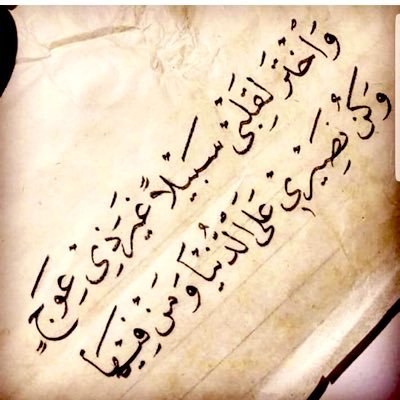 وَاخْتَرْ لِقَلْبِيْ سَبِيْلاً غَيْرَ ذِيْ عِوَجٍ
وَكُنْ نَصِيْرِيْ عَلَى الْدُّنْيَا وَمَنْ فِيْهَا